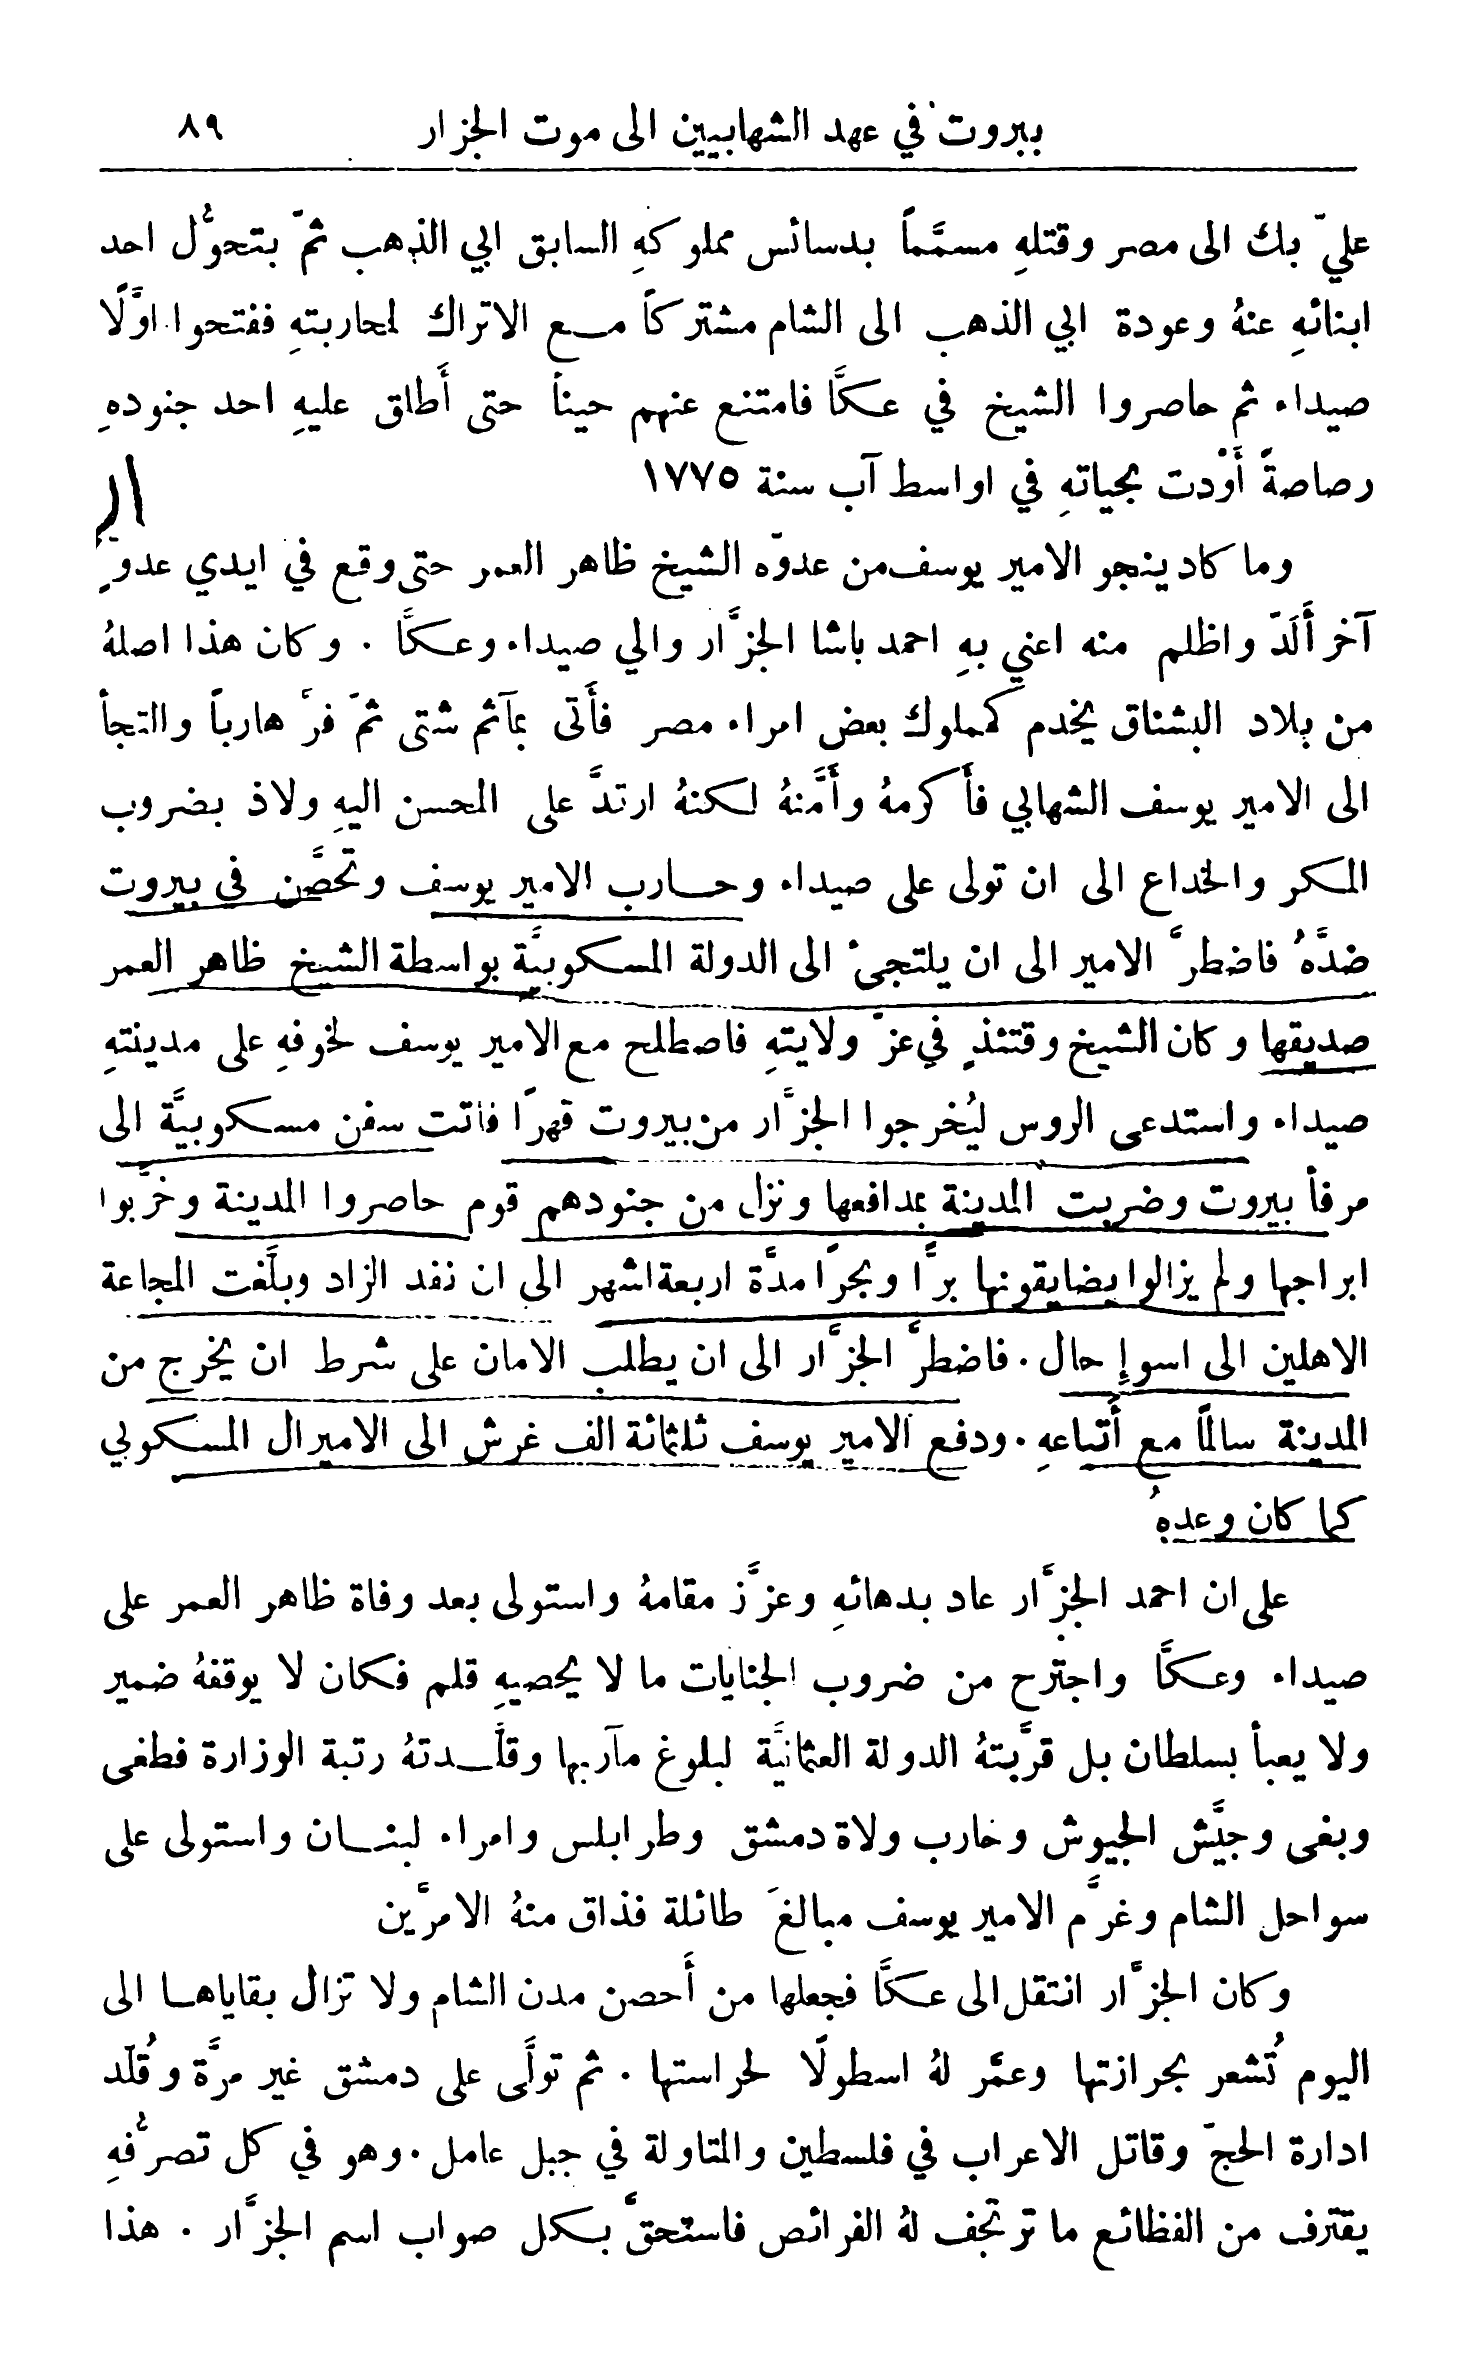 بيروت في عهد الشهابيين الى موت الجزار ٨٩
عليّ بك الى مصر وقتلهِ مسمَّماً بدسائس مملوكهِ السابق ابي الذهب ثمّ بتحوُّل احد
ابنائهِ عنهُ وعودة ابي الذهب الى الشام مشتركاً مع الاتراك لمحاربتهِ ففتحوا اوَّلًا
صيداء ثم حاصروا الشيخ في عكَّا فامتنع عنهم حيناً حتى أَطلق عليهِ احد جنودهِ
رصاصةً أَوْدت بحياتهِ في اواسط آب سنة ١٧٧٥
وما كاد ينجو الامير يوسف من عدوّه الشيخ ظاهر العمر حتى وقع في ايدي عدوٍ
آخر أَلَدّ واظلم منه اعني بهِ احمد باشا الجزَّار والي صيداء وعكَّا . وكان هذا اصلهُ
من بلاد البشناق يخدم كمملوك بعض امراء مصر فأَتى بمآثم شتى ثمّ فرَّ هارباً والتجأ
الى الامير يوسف الشهابي فأَكرمهُ وأَمَّنهُ لكنهُ ارتدَّ على المحسن اليهِ ولاذ بضروب
المكر والخداع الى ان تولى على صيداء وحارب الامير يوسف وتحصَّن في بيروت
ضدَّهُ فاضطرَّ الامير الى ان يلتجئ الى الدولة المسكوبيَّة بواسطة الشيخ ظاهر العمر
صديقها وكان الشيخ وقتئذٍ في عزّ ولايتهِ فاصطلح مع الامير يوسف لخوفهِ على مدينتهِ
صيداء واستدعى الروس ليُخرجوا الجزَّار من بيروت قهرًا فاتت سفن مسكوبيَّة الى
مرفأ بيروت وضربت المدينة بمدافعها ونزل من جنودهم قوم حاصروا المدينة وخرَّبوا
ابراجها ولم يزالوا يضايقونها برًّا وبحرًا مدَّة اربعة اشهر الى ان نفد الزاد وبلَّغت المجاعة
الاهلين الى اسوإِ حال . فاضطرَّ الجزَّار الى ان يطلب الامان على شرط ان يخرج من
المدينة سالمًا مع أَتباعهِ . ودفع الامير يوسف ثلثمائة الف غرش الى الاميرال المسكوبي
كما كان وعدهُ
على ان احمد الجزَّار عاد بدهائهِ وعزَّز مقامهُ واستولى بعد وفاة ظاهر العمر على
صيداء وعكَّا واجترح من ضروب الجنايات ما لا يحصيهِ قلم فكان لا يوقفهُ ضمير
ولا يعبأ بسلطان بل قرَّبتهُ الدولة العثمانيَّة لبلوغ مآربها وقلَّدتهُ رتبة الوزارة فطغى
وبغى وجيَّش الجيوش وحارب ولاة دمشق وطرابلس وامراء لبنان واستولى على
سواحل الشام وغرَّم الامير يوسف مبالغَ طائلة فذاق منهُ الامرَّين
وكان الجزَّار انتقل الى عكَّا فجعلها من أَحصن مدن الشام ولا تزال بقاياها الى
اليوم تُشعر بحرازتها وعمَّر لهُ اسطولًا لحراستها . ثم تولَّى على دمشق غير مرَّة وقُلّد
ادارة الحجّ وقاتل الاعراب في فلسطين والمتاولة في جبل عامل . وهو في كل تصرُّفهِ
يقترف من الفظائع ما ترتجف لهُ الفرائص فاستحقَّ بكل صواب اسم الجزَّار . هذا